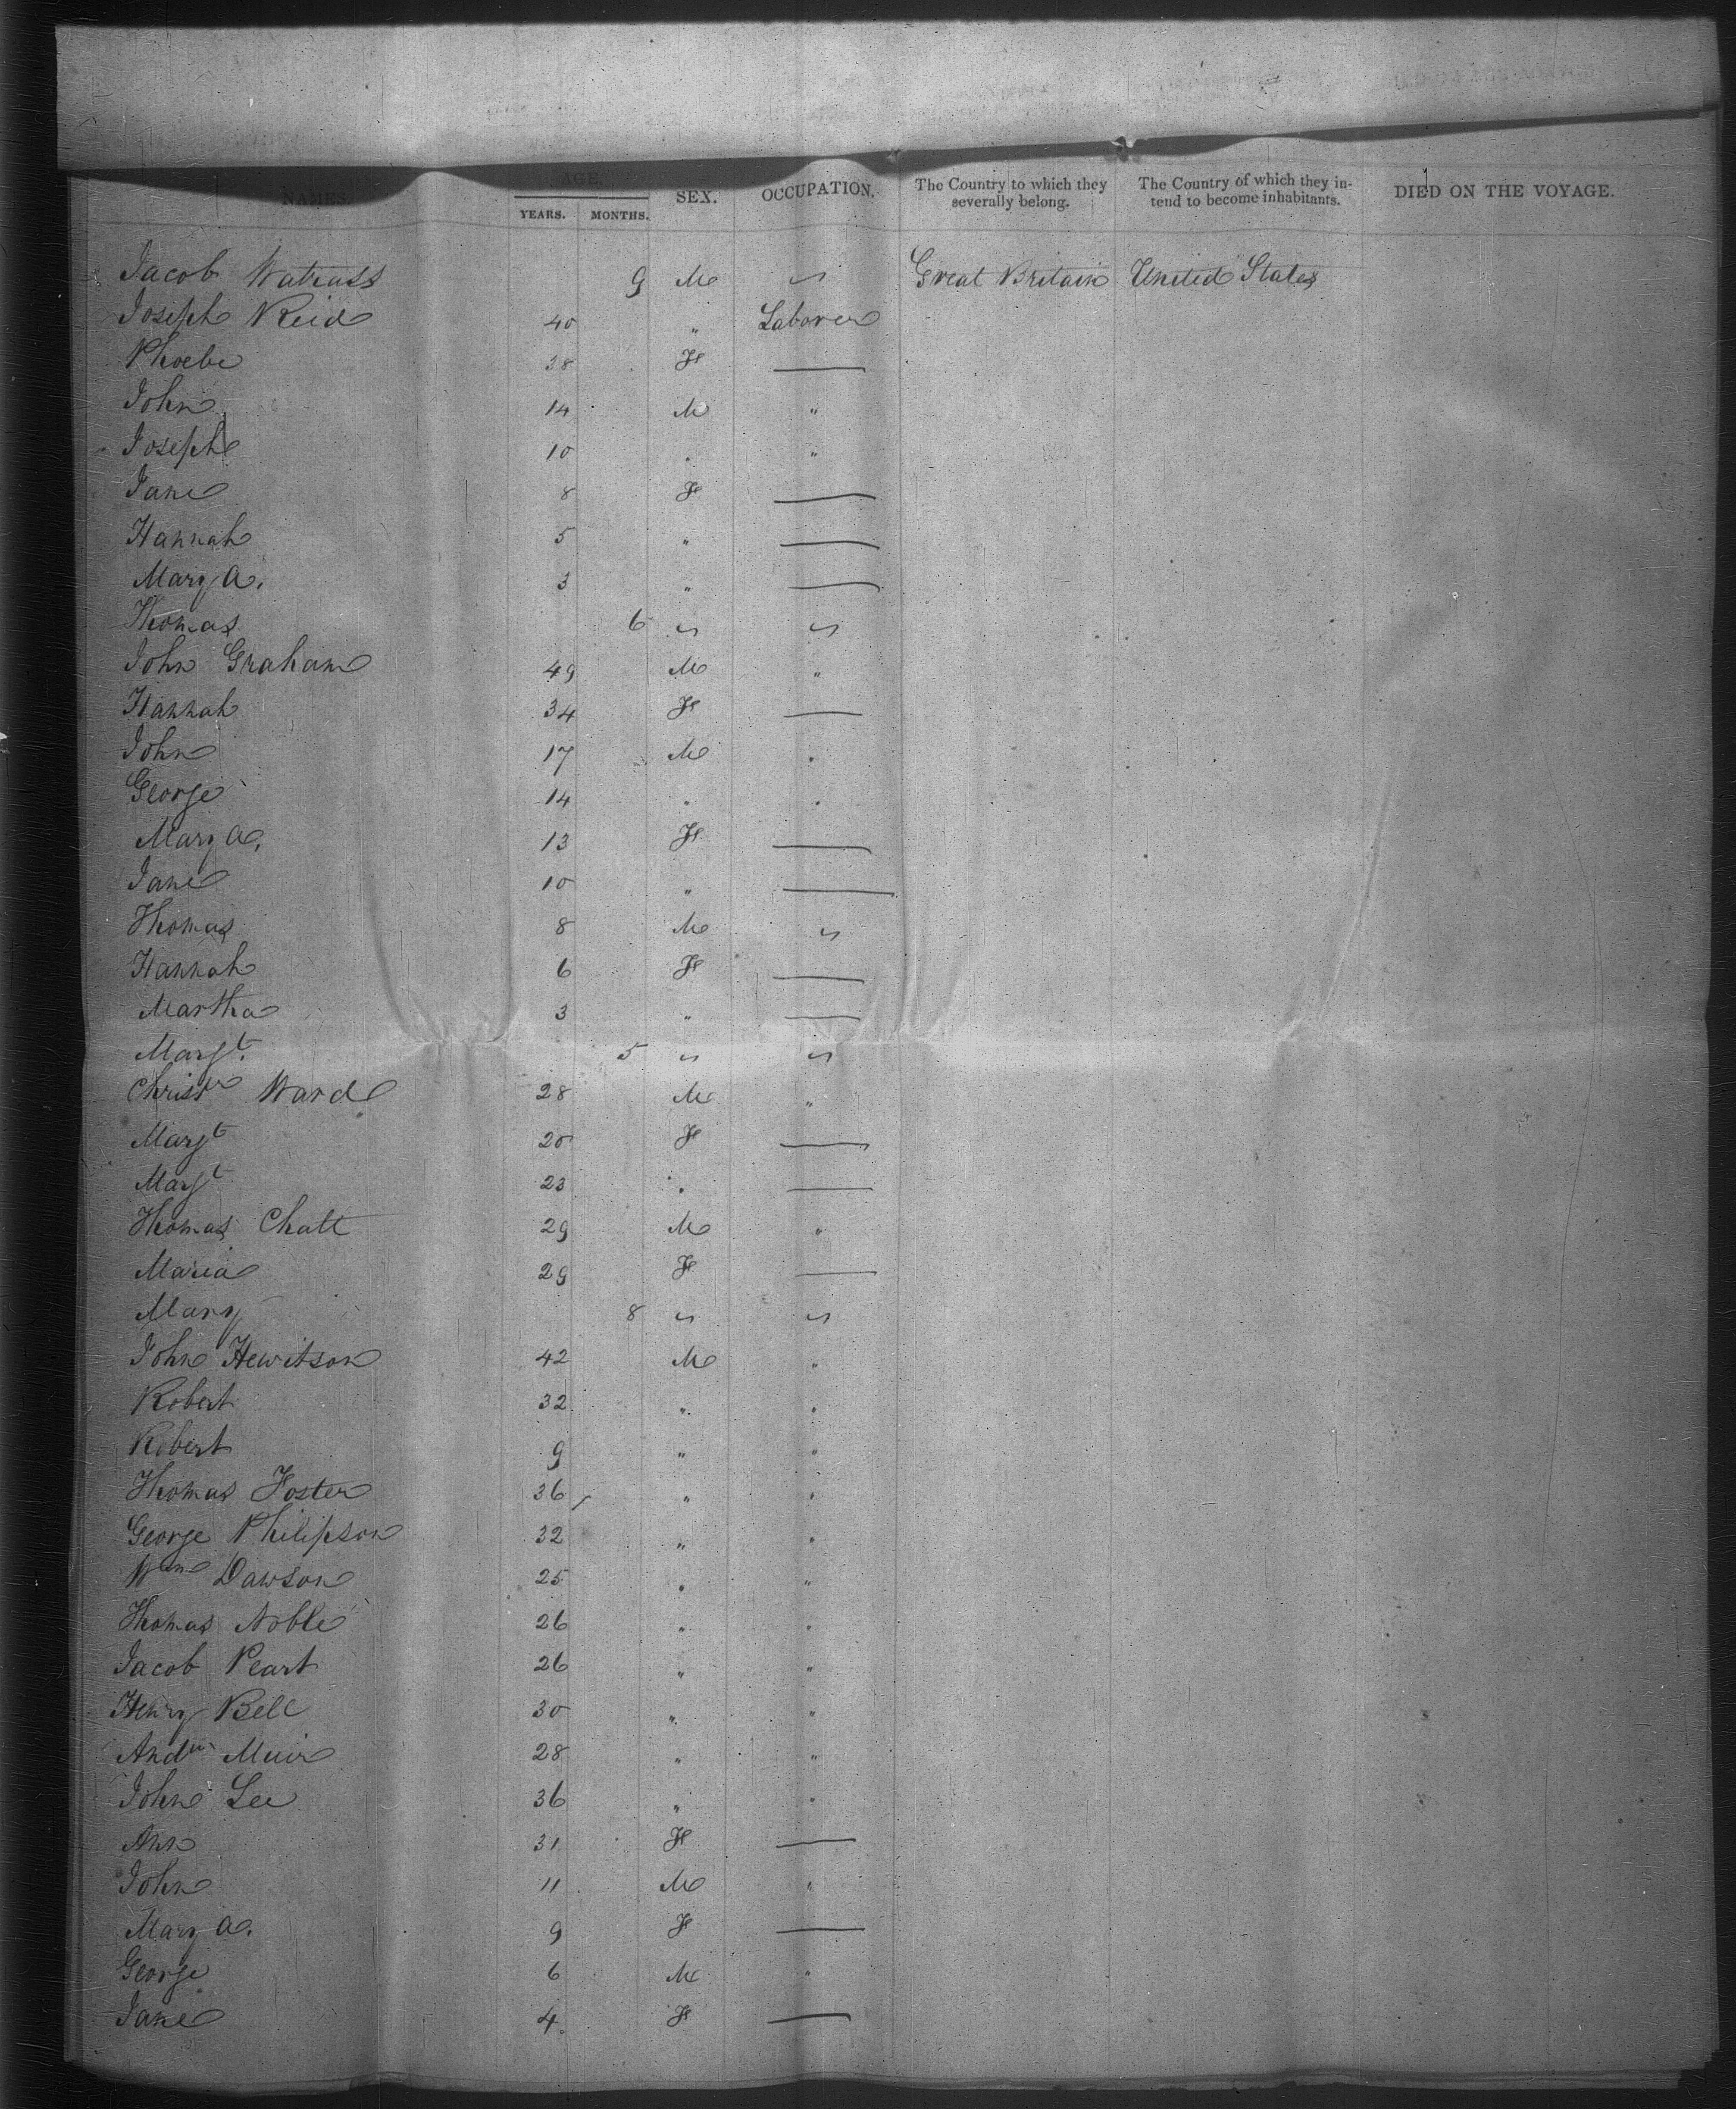 NAMES. AGE. YEARS. MONTHS. SEX. OCCUPATION. The Country to which they severally belong. The Country of which they in-tend to become inhabitants. DIED ON THE VOYAGE.
Jacob Watrass 9 M " Great Britain United States
Joseph Reid 40 " Laborer
Phoebe 38 F —
John 14 M "
Joseph 10 " "
Jane 8 F —
Hannah 5 " —
Mary A. 3 " —
Thomas 6 " "
John Graham 49 M "
Hannah 34 F —
John 17 M "
George 14 " "
Mary A. 13 F —
Jane 10 " —
Thomas 8 M "
Hannah 6 F —
Martha 3 " —
Margt. 5 " "
Christr Ward 28 M "
Margt 20 F —
Margt 23 " —
Thomas Chatt 29 M "
Maria 29 F —
Mary 8 " "
John Hewitson 42 M "
Robert 32 " "
Robert 9 " "
Thomas Foster 36 " "
George Philipson 32 " "
Wm Dawson 25 " "
Thomas Noble 26 " "
Jacob Peart 26 " "
Henry Bell 30 " "
Andw Muir 28 " "
John Lee 36 " "
Ann 31 F —
John 11 M "
Mary A. 9 F —
George 6 M "
Jane 4. F —